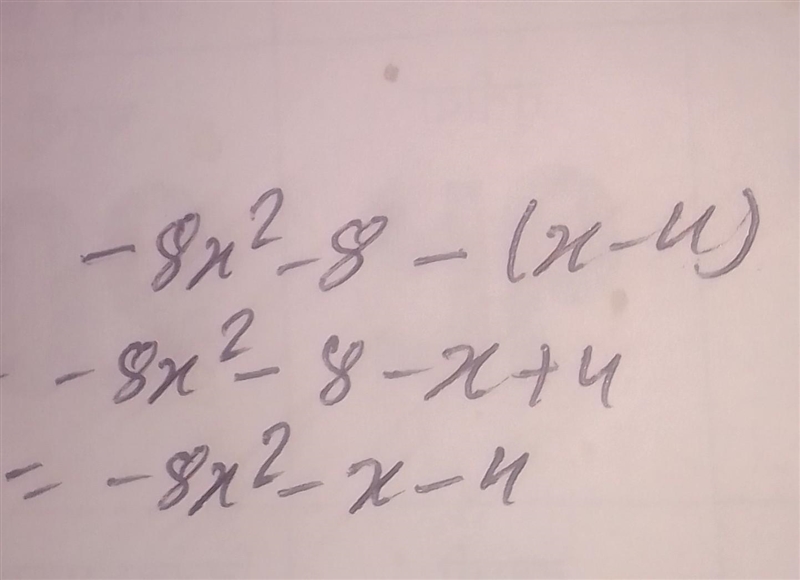 -8x² - 8 - (x - 4)
- -8x² - 8 - x + 4
= -8x² - x - 4